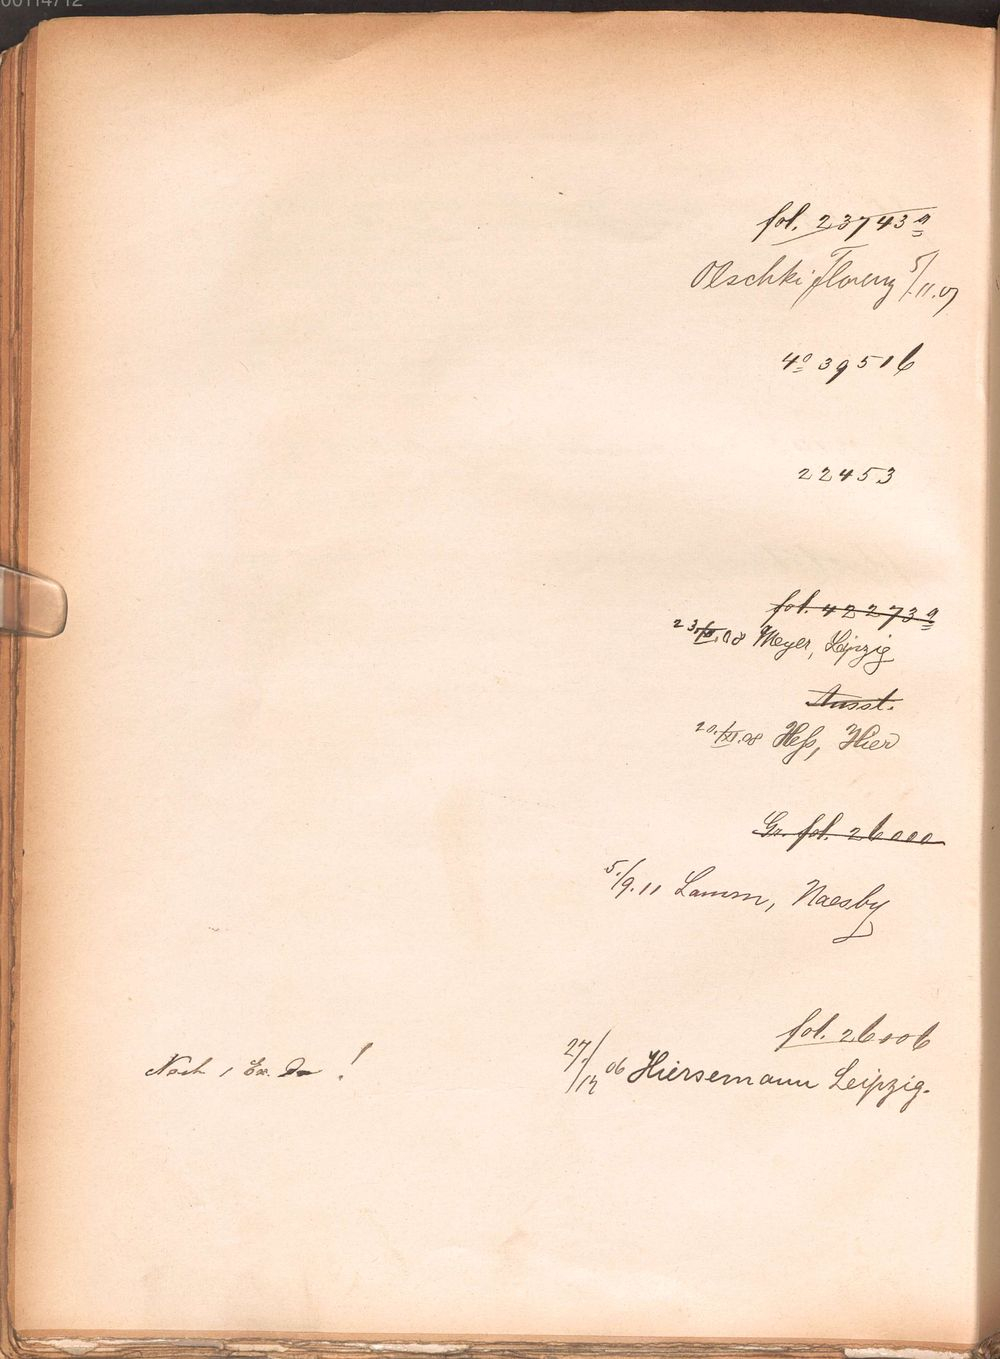 00114712
fol. 23743 a
Olschki Florenz 5/11.07
4º 39516
22453
fol. 42273 a
23./XI.08 Meyer, Leipzig
Ausst.
20./XI.08 Heß, Hier
Gr. fol. 26000
5./9.11 Lamm, Naesby
fol. 26006
27/12 06 Hiersemann Leipzig.
Noch 1 Ex. da !